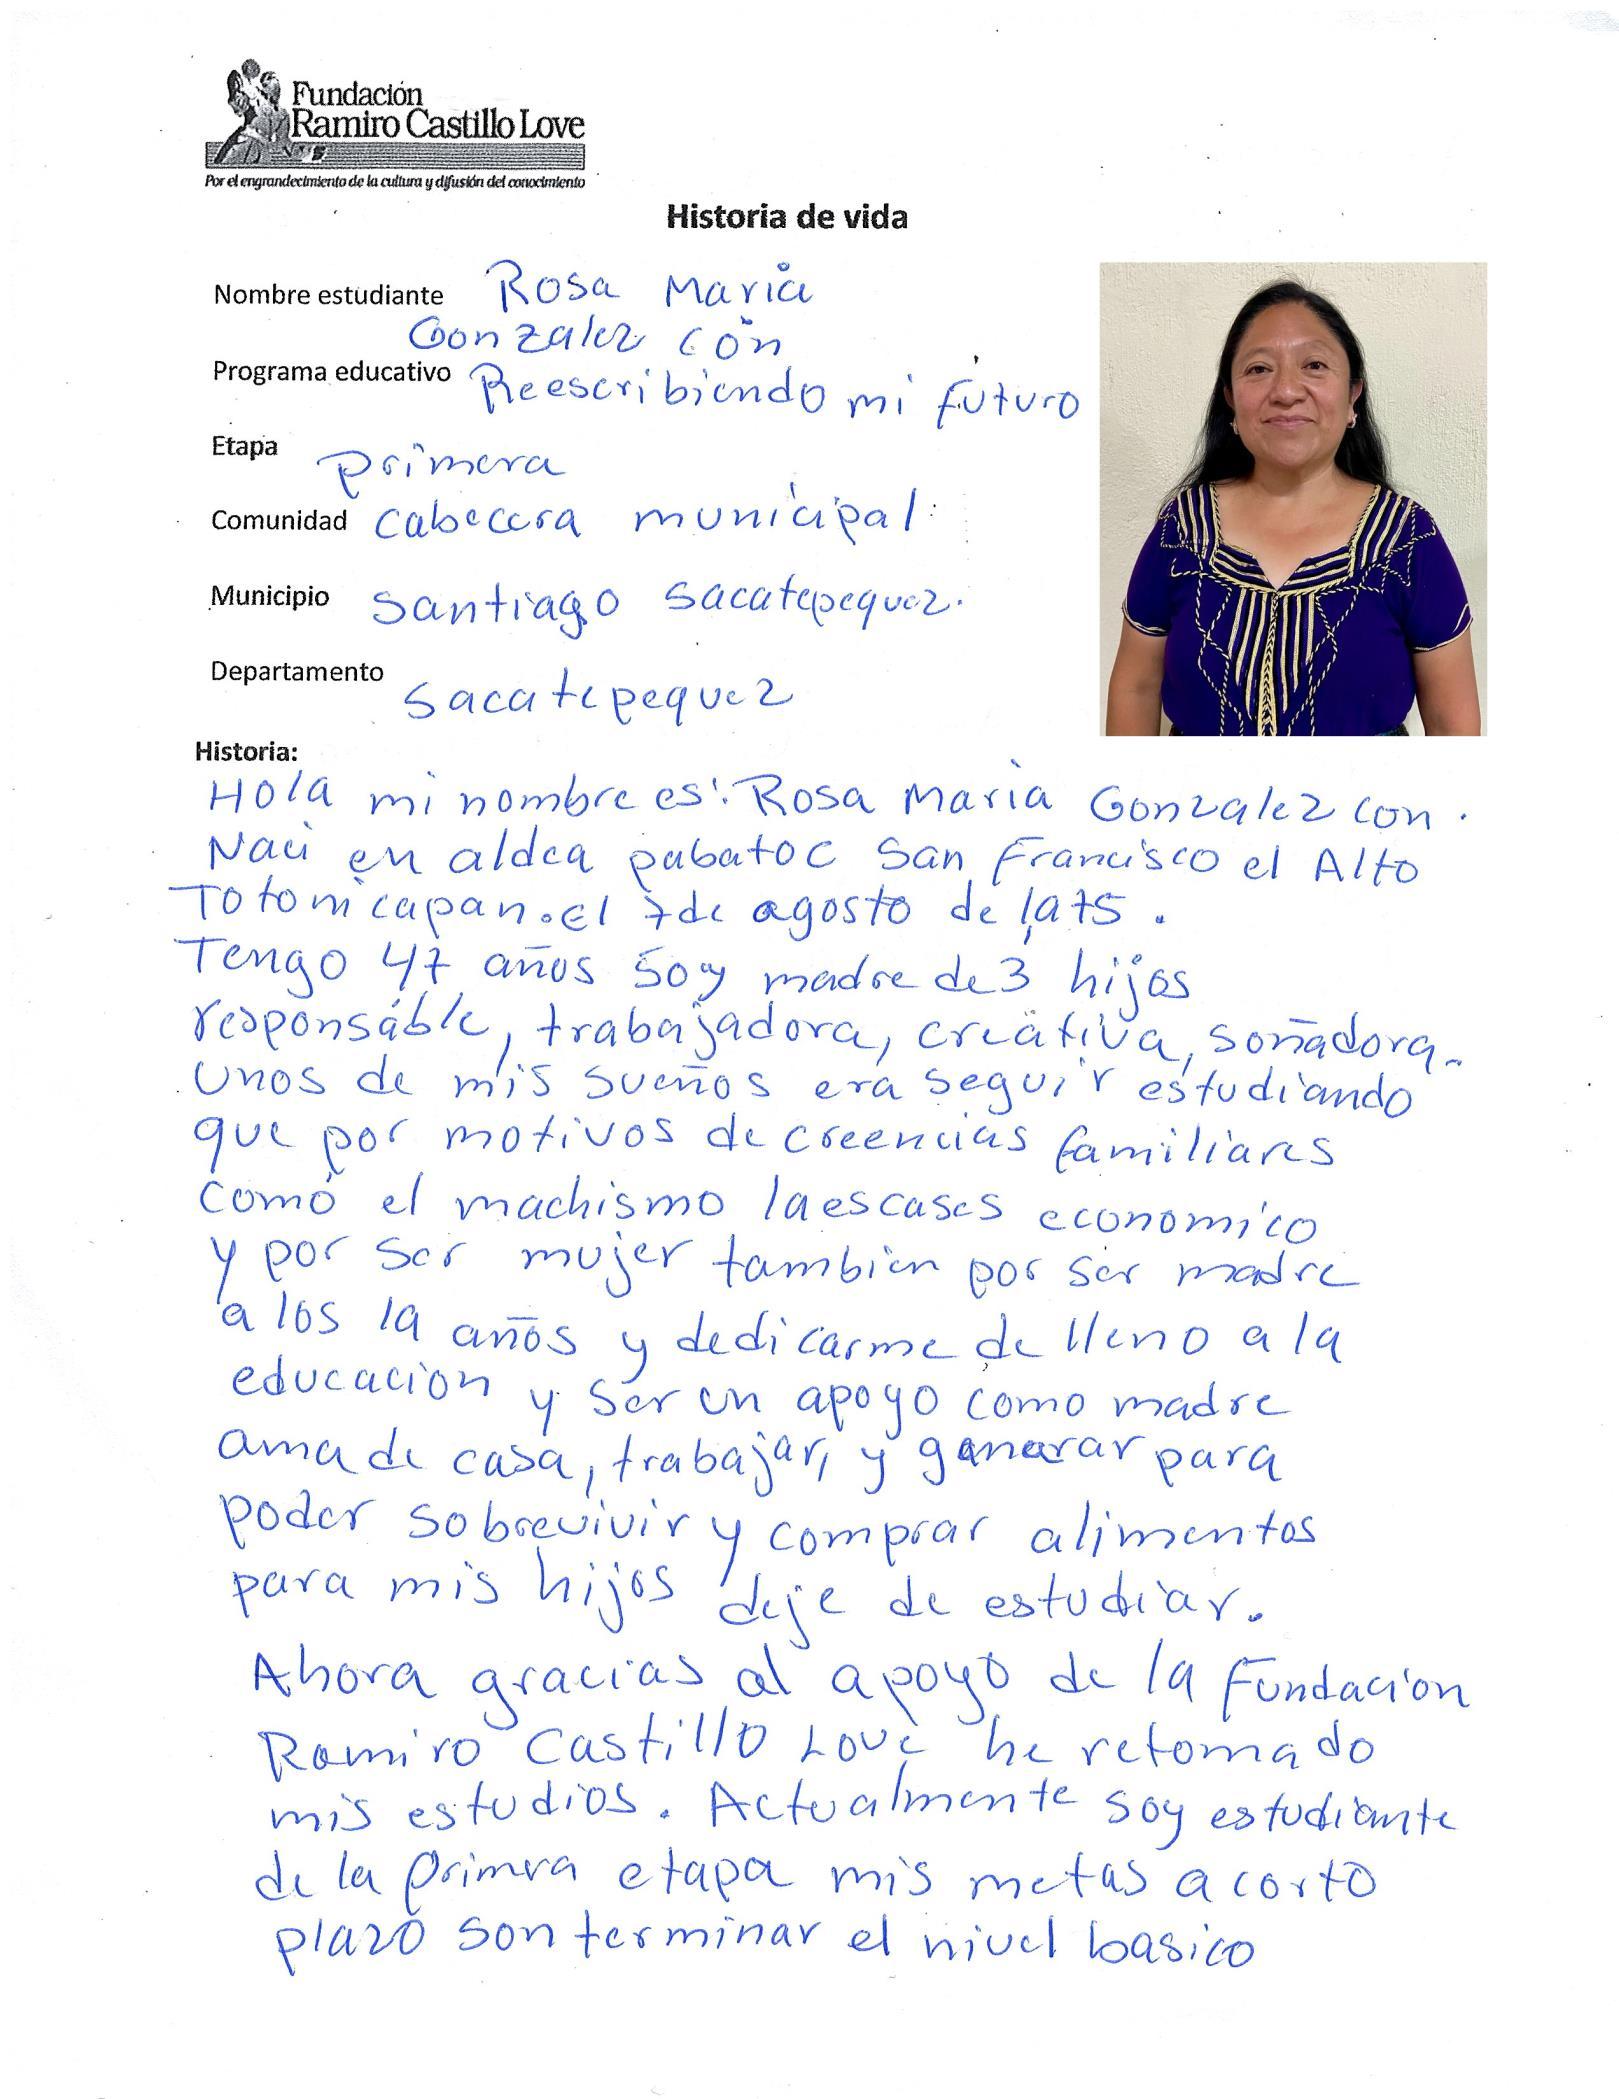 Fundación
Ramiro Castillo Love
Por el engrandecimiento de la cultura y difusión del conocimiento
Historia de vida
Nombre estudiante Rosa Maria
Gonzalez Cón
Programa educativo Reescribiendo mi futuro
Etapa primera
Comunidad cabecera municipal
Municipio Santiago Sacatepequez.
Departamento Sacatepequez
Historia:
Hola mi nombre es: Rosa Maria Gonzalez Con.
Naci en aldea pabatoc San Francisco el Alto
Totonicapan. el 7 de agosto de 1975.
Tengo 47 años soy madre de 3 hijos
responsáble, trabajadora, creativa, soñadora.
Unos de mis sueños era seguir estudiando
que por motivos de creencias familiares
como el machismo la escases economico
y por ser mujer tambien por ser madre
a los 19 años y dedicarme de lleno a la
educación y ser un apoyo como madre
ama de casa, trabajar, y ganarar para
poder sobrevivir y comprar alimentos
para mis hijos deje de estudiar.
Ahora gracias al apoyo de la Fundacion
Ramiro Castillo Love he retomado
mis estudios. Actualmente soy estudiante
de la primra etapa mis metas a corto
plazo son terminar el nivel basico